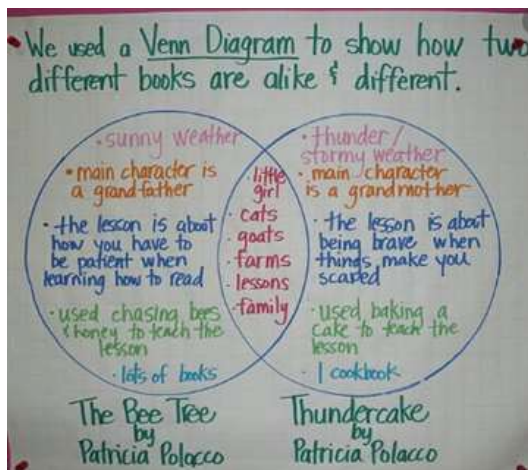 We used a Venn Diagram to show how two
different books are alike & different.
• sunny weather
• main character is
a grandfather
• the lesson is about
how you have to
be patient when
learning how to read
• used chasing bees
& honey to teach the
lesson
• lots of books
• little
girl
• cats
• goats
• farms
• lessons
• family
• thunder/
stormy weather
• main character
is a grandmother
• the lesson is about
being brave when
things make you
scared
• used baking a
cake to teach the
lesson
• 1 cookbook
The Bee Tree
by
Patricia Polacco
Thundercake
by
Patricia Polacco